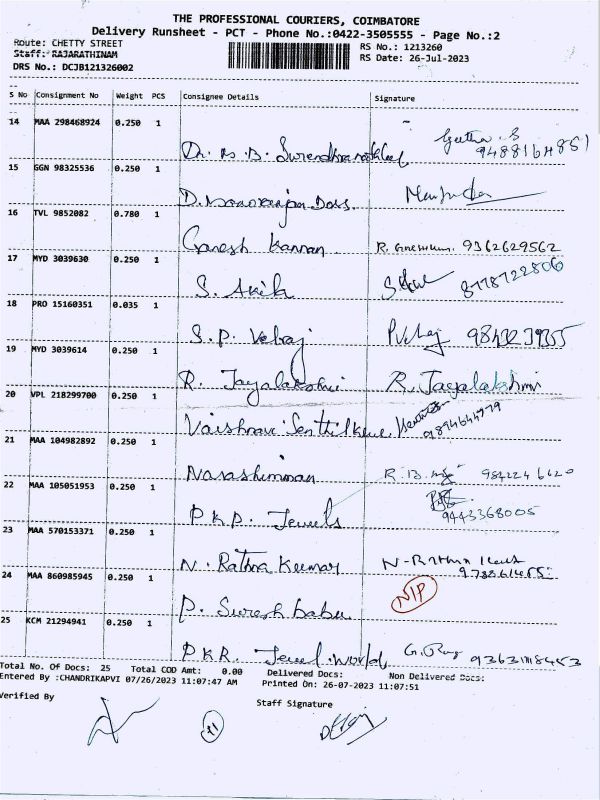 THE PROFESSIONAL COURIERS, COIMBATORE
Delivery Runsheet - PCT - Phone No.:0422-3505555 - Page No.:2
Route: CHETTY STREET
RS No.: 1213260
Staff: RAJARATHINAM
RS Date: 26-Jul-2023
DRS No.: DCJB121326002
S No Consignment No Weight PCS Consignee Details Signature
14 MAA 298468924 0.250 1
Geetha. S
9488164851
15 GGN 98325536 0.250 1
D. Doss.
16 TVL 9852082 0.780 1
Ganesh Kannan R. 9362629562
17 MYD 3039630 0.250 1
S. Akila 8778722806
18 PRO 15160351 0.035 1
S. P. Velraj
19 MYD 3039614 0.250 1
R. Jayalakshmi R. Jayalakshmi
20 VPL 218299700 0.250 1
Vaishnavi
21 MAA 104982892 0.250 1
Narashimman R. B. 9842246620
22 MAA 105051953 0.250 1
P K P. Jewels 9443368005
23 MAA 570153371 0.250 1
N. Rathna Kumar N-Rathna
24 MAA 860985945 0.250 1
P. Suresh babu NIP
25 KCM 21294941 0.250 1
P K R. Jewel. world G.
Total No. Of Docs: 25 Total COD Amt: 0.00 Delivered Docs: Non Delivered Docs:
Entered By :CHANDRIKAPVI 07/26/2023 11:07:47 AM Printed On: 26-07-2023 11:07:51
Verified By Staff Signature